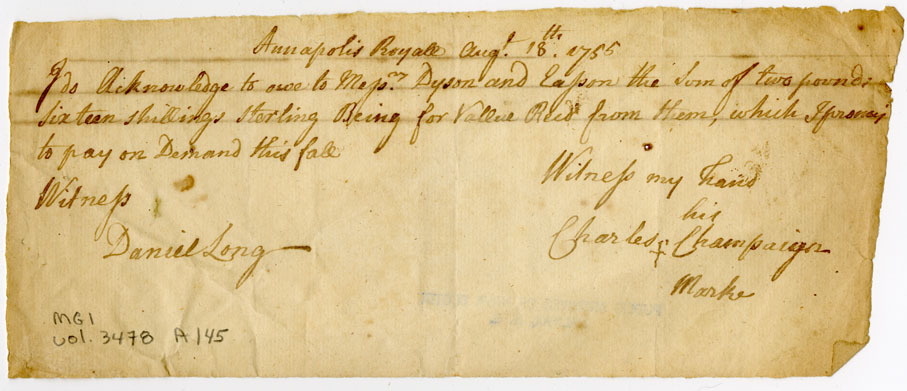 Annapolis Royall Augt. 18th. 1755
I do Acknowledge to owe to Messrs. Dyson and Eason the Som of two pounds
Sixteen shillings Sterling Being for Vallue Recd from them, which I promis
to pay on Demand this fall
Witness my hand
Witness
his
Daniel Long
Charles + Champaign
Marke
MG1
vol. 3478 A 145